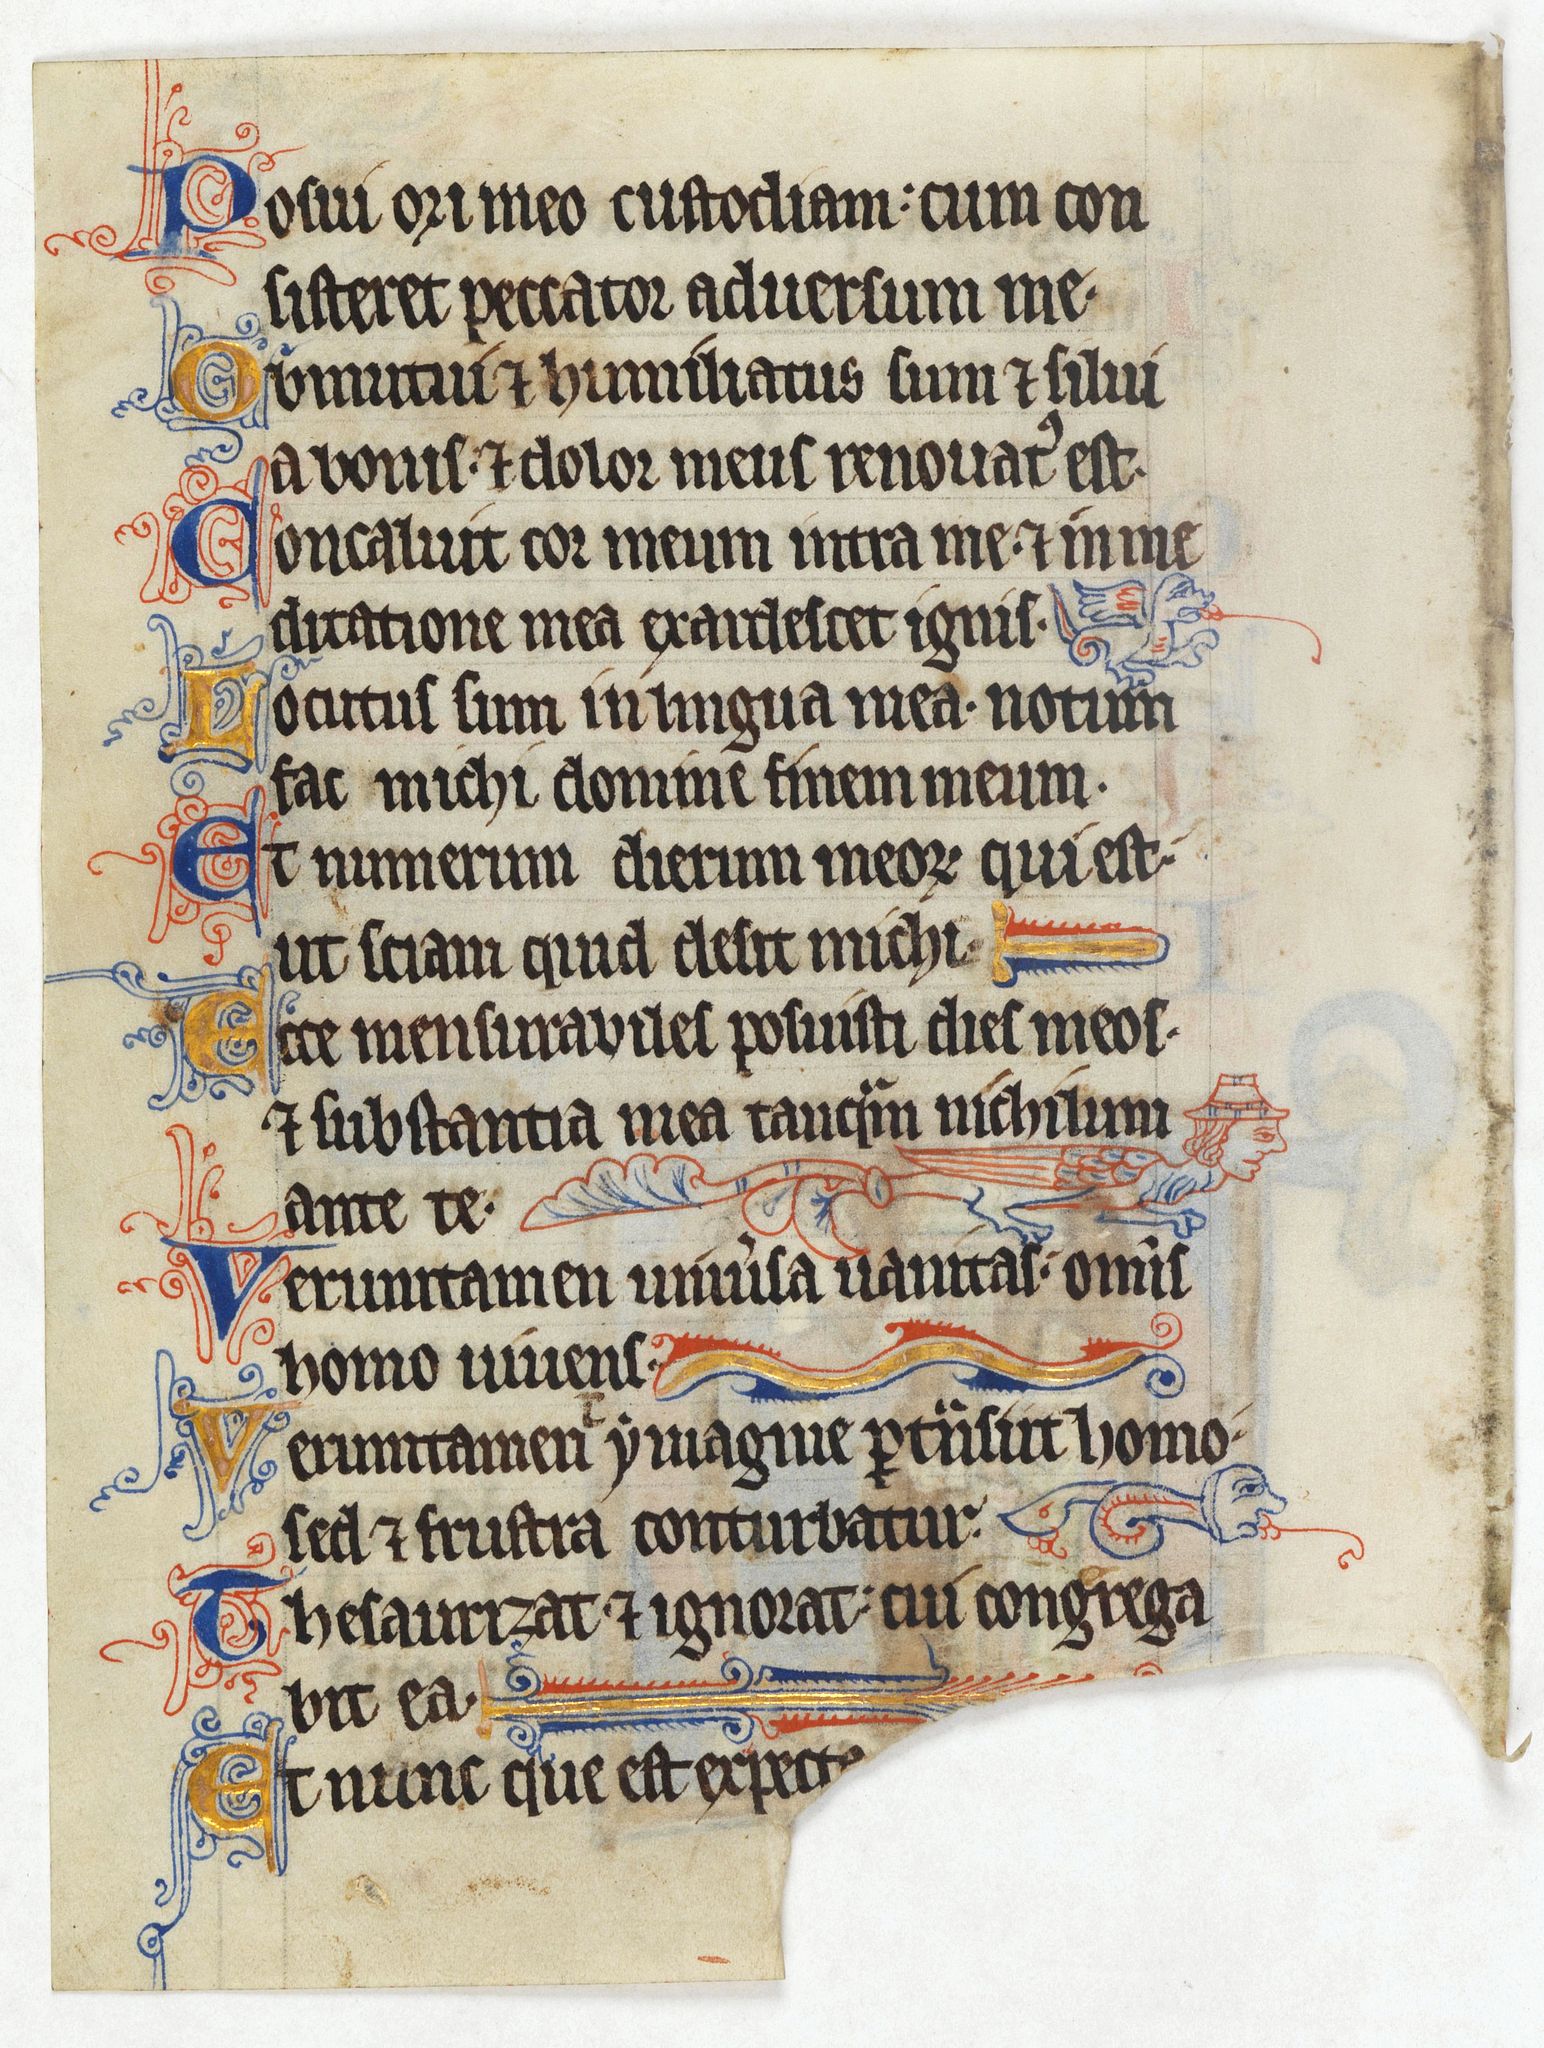 Posui ori meo custodiam: cum con
sisteret peccator aduersum me·
Obmutui ⁊ humiliatus sum ⁊ silui
a bonis· ⁊ dolor meus renouatꝰ est·
Concaluit cor meum intra me· ⁊ in me
ditatione mea exardescet ignis·
Locutus sum in lingua mea· notum
fac michi domine finem meum·
Et numerum dierum meoꝝ qui est·
ut sciam quid desit michi·
Ecce mensurabiles posuisti dies meos·
⁊ substantia mea tanqᷓm nichilum
ante te·
Veruntamen uniu͛sa uanitas: omīs
homo uiuens·
Veruntamen ymagine ꝑtͣnsiit homo·
sed ⁊ frustra conturbatur·
Thesaurizat· ⁊ ignorat: cui congrega
bit ea·
Et nunc que est expecta